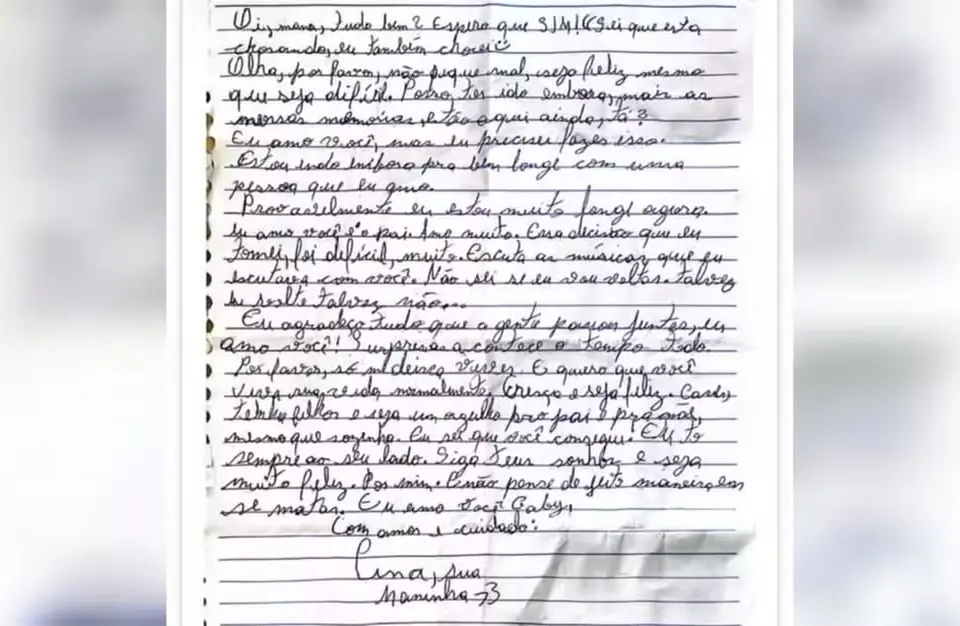 Oi, mana, tudo bem? Espero que SIM! (Sei que esta
chorando, eu também chorei
Olha, por favor, não fique mal, seja feliz mesmo
que seja difícil. Posso ter ido embora, mais as
nossas memórias, estão aqui ainda, tá?
Eu amo você, mas eu precisei fazer isso.
Estou indo embora pra bem longe com uma
pessoa que eu amo.
Provavelmente eu estou muito longe agora.
Eu amo você e o pai Amo muito. Essa decisão que eu
tomei, foi difícil, muito. Escuta as músicas que eu
escutava com você. Não sei se eu vou voltar. talvez
eu volte talvez não...
Eu agradeço tudo que a gente passou juntas, eu
amo você! Surpresas acontece o tempo todo.
Por favor, só me deixa viver. E quero que você
viva sua vida normalmente, Cresça e seja feliz. Case,
tenha filhos e seja um orgulho pro pai e pra mãe,
mesmo que sozinha. Eu sei que você consegui. Eu to
sempre ao seu lado. Siga teus sonhos e seja
muito feliz. Por mim. E não pense de jeito maneira em
se matar. Eu amo você Gaby,
Com amor e cuidado:
sua
Maninha <3